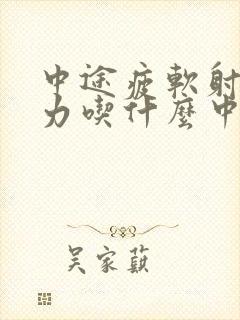 中途疲軟射
力喫什麼中
吴家蘇